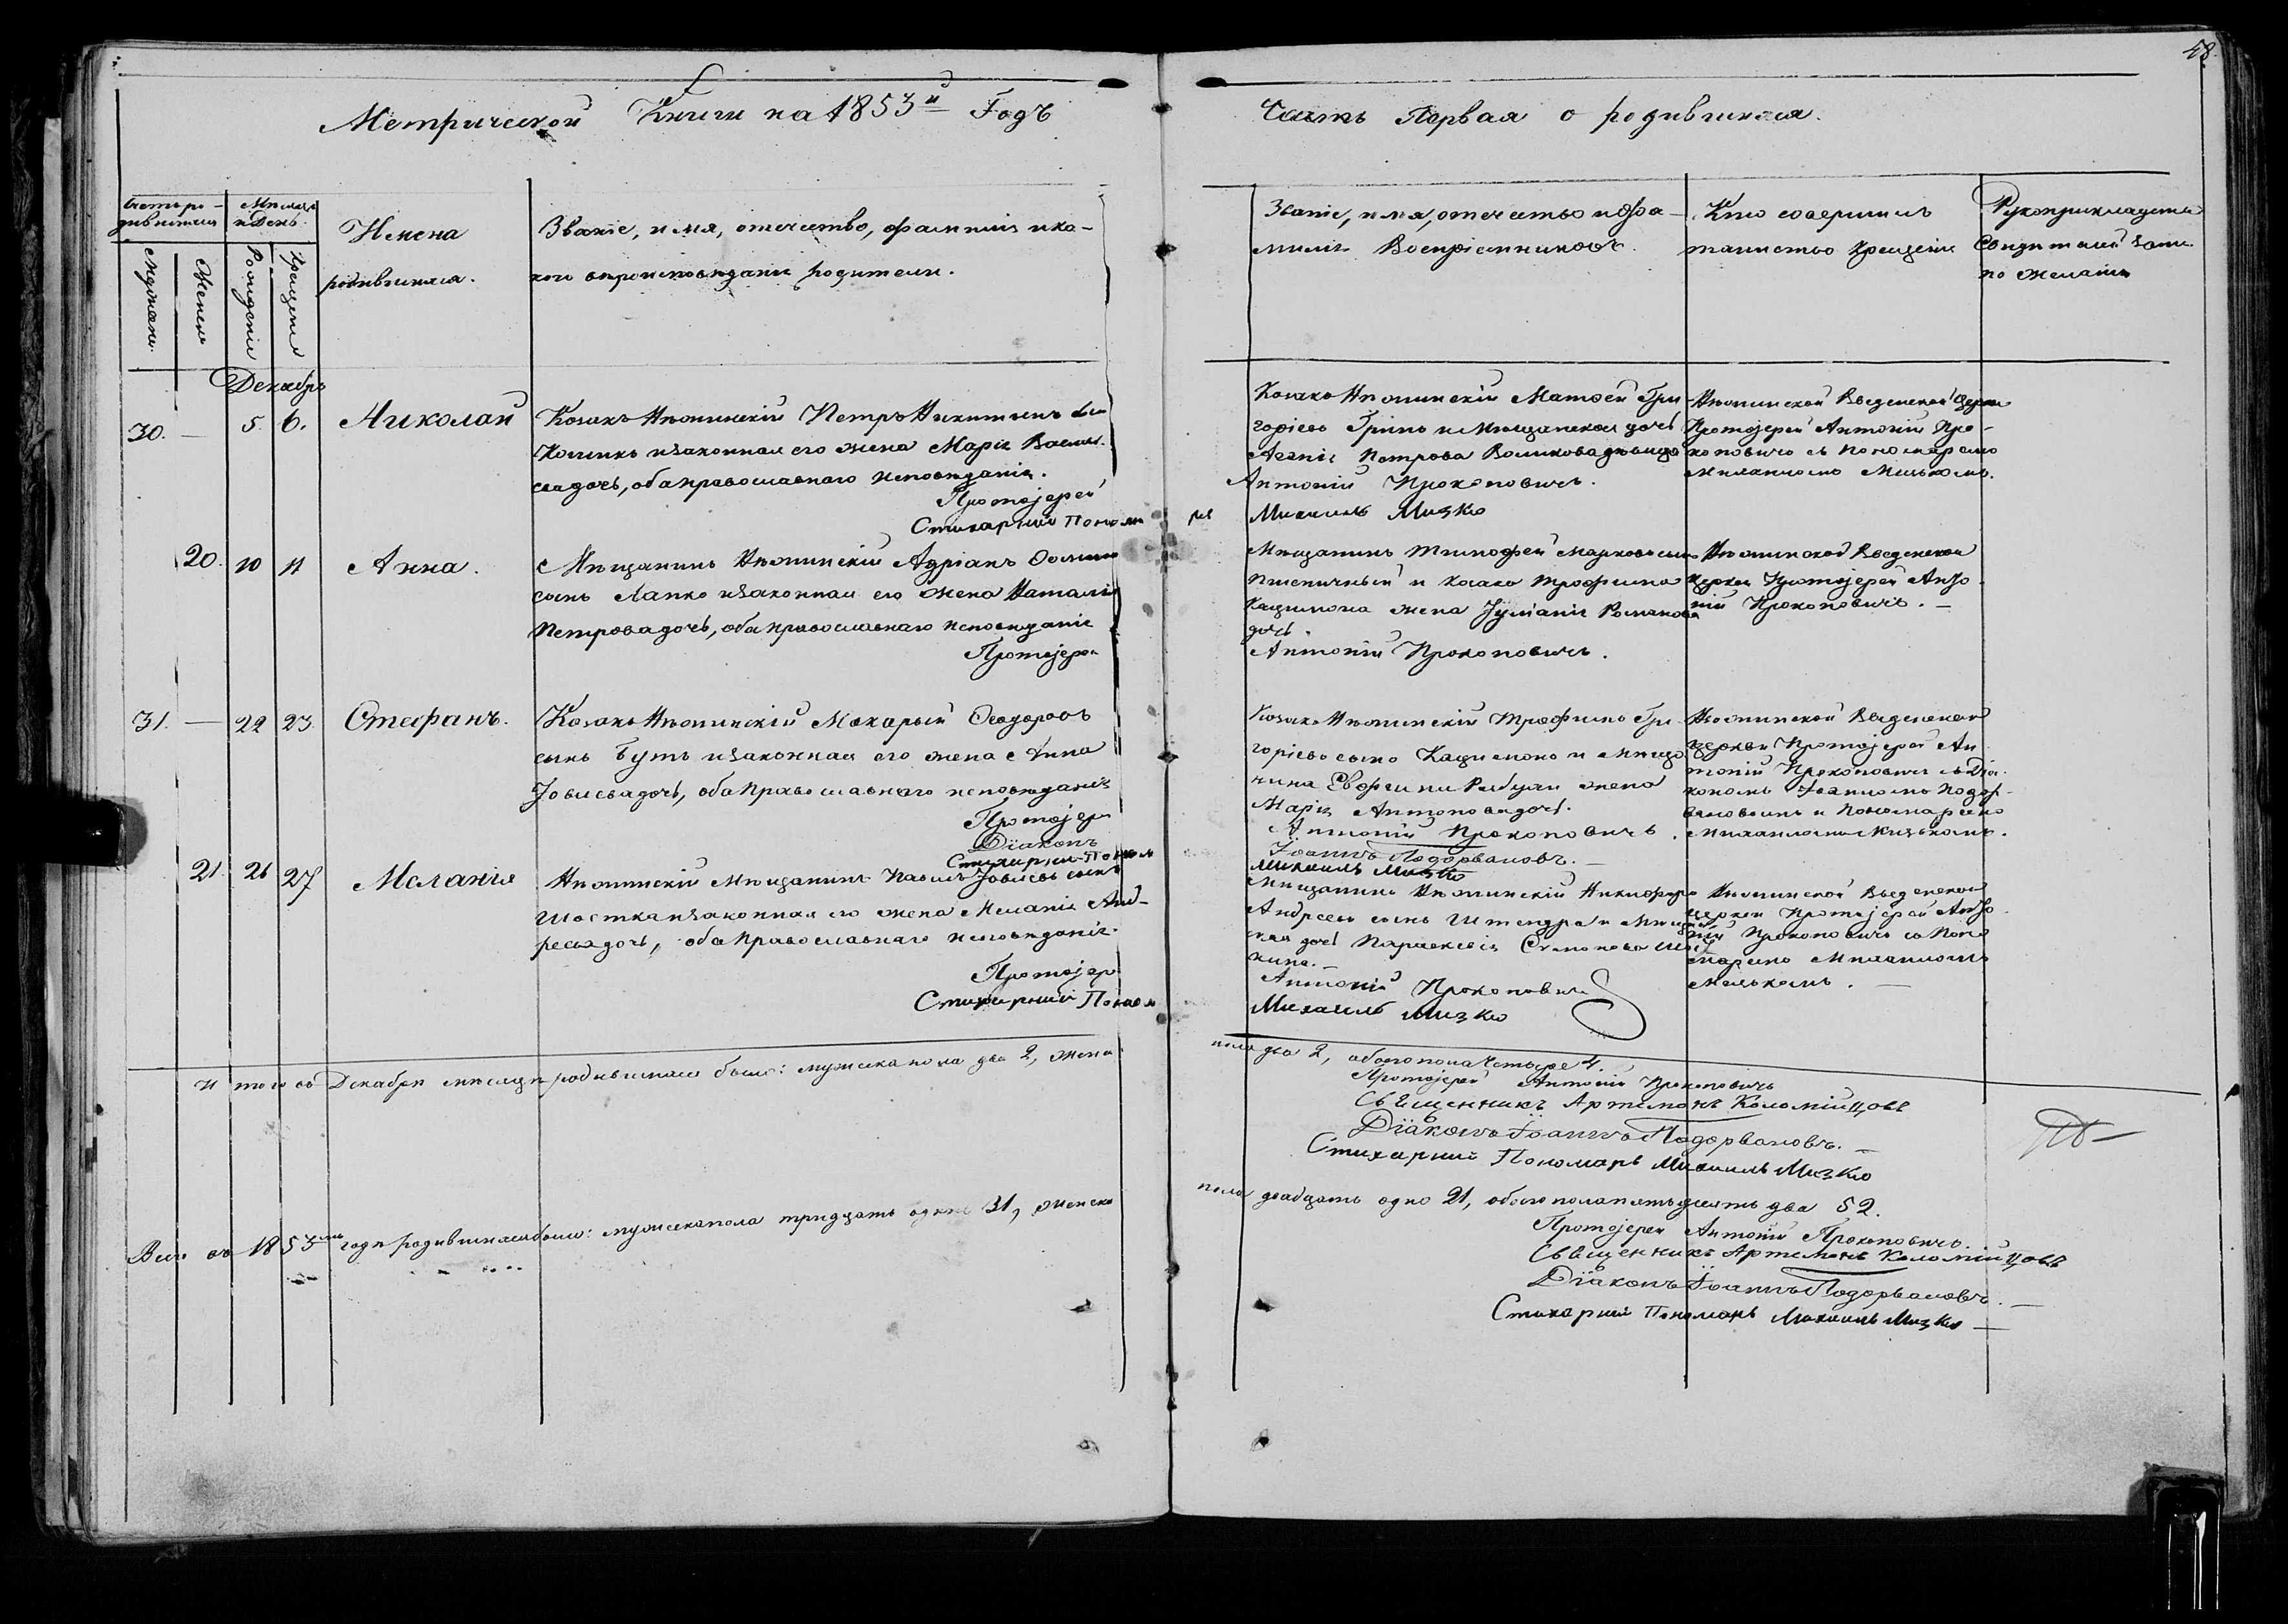 58.
Метрической Книги на 1853й Годъ
Часть Первая о родившихся.
Счетъ ро-
дившихся
Мѣсяцъ
и День
Мужеска.
Женска
Рожденія
Крещенія
Имена
родившихся.
Званіе, имя, отчество, фамилія и ка-
кого вѣроисповѣданія родители.
Званіе, имя, отчество и фа-
милія Воспріемниковъ.
Кто совершилъ
таинство крещенія
Рукоприкладство
свидѣтелей записи
по желанію
Декабрь
30. — 5. 6. Николай
Козакъ Нѣжинскій Петръ Никитинъ сынъ
и законная его жена Марія Василь-
ева дочь, оба православнаго исповѣданія.
Протоіерей
Стихарный Поном
Козакъ Нѣжинскій Матѳей Гри-
горіевъ и Мѣщанская дочь
Агаѳія Петрова
Антоній Прокоповичъ.
рь Михаилъ Мизко
Нѣжинской Введенской церкви
Протоіерей Антоній Про-
коповичъ съ Пономаремъ
Михаиломъ Мизькомъ.
20. 10 11 Анна.
Мѣщанинъ Нѣжинскій Адріанъ
сынъ Лапко и законная его жена Наталія
Петрова дочь, оба православнаго исповѣданія
Протоіерей
Мѣщанинъ Тимофей Марковъ сынъ
Пшеничный и козака Трофима
Кацимона жена Іуліанія Романова
дочь.
Антоній Прокоповичъ.
Нѣжинской Введенской
церкви Протоіерей Анто-
ній Прокоповичъ. —
31. — 22 23. Стефанъ.
Козакъ Нѣжинскій Макарый Ѳеодоровъ
сынъ Бутъ и законная его жена Анна
Іовлева дочь, оба православнаго исповѣданія
Протоіере
Діаконъ
Стихарный Поном
Козакъ Нѣжинскій Трофимъ Гри-
горіевъ сынъ Кацимонъ и мѣща-
нина жена
Марія Антонова дочь.
Антоній Прокоповичъ.
Іоаннъ Подорвановъ. —
Михаилъ Мизко
Нѣжинской Введенской
церкви Протоіерей Ан-
тоній Прокоповичъ съ Діа-
кономъ Іоанномъ Подор-
вановымъ и Пономаремъ
Михаиломъ Мизькомъ.
21. 26 27 Меланія
Нѣжинскій мѣщанинъ Павелъ Іовлевъ сынъ
Шостка и законная его жена Меланія Анд-
реева дочь, оба православнаго исповѣданія.
Протоіер
Стихарный Поном
Мѣщанинъ Нѣжинскій Никифоръ
Андреевъ сынъ и Мѣщан-
ская дочь Параскевія Семенова Шост-
кина.
Антоній Прокоповичъ
Михаилъ Мизко
Нѣжинской Введенской
церкви Протоіерей Анто-
ній Прокоповичъ съ Поно-
маремъ Михаиломъ
Мизькомъ. —
И того въ Декабрѣ мѣсяцѣ родившихся было: мужеска пола два 2, женска
пола два 2, обоего пола четыре 4.
Протоіерей Антоній Прокоповичъ
Священникъ Артемонъ Коломійцовъ
Діаконъ Іоаннъ Подорвановъ. —
Стихарный Пономарь Михаилъ Мизко
Всего въ 1853мъ годѣ родившихся было: мужеска пола тридцать одинъ 31, женска
пола двадцать одно 21, обоего пола пятьдесять два 52.
Протоіерей Антоній Прокоповичъ.
Священникъ Артемонъ Коломійцовъ
Діаконъ Іоаннъ Подорвановъ. —
Стихарный Пономарь Михаилъ Мизко —